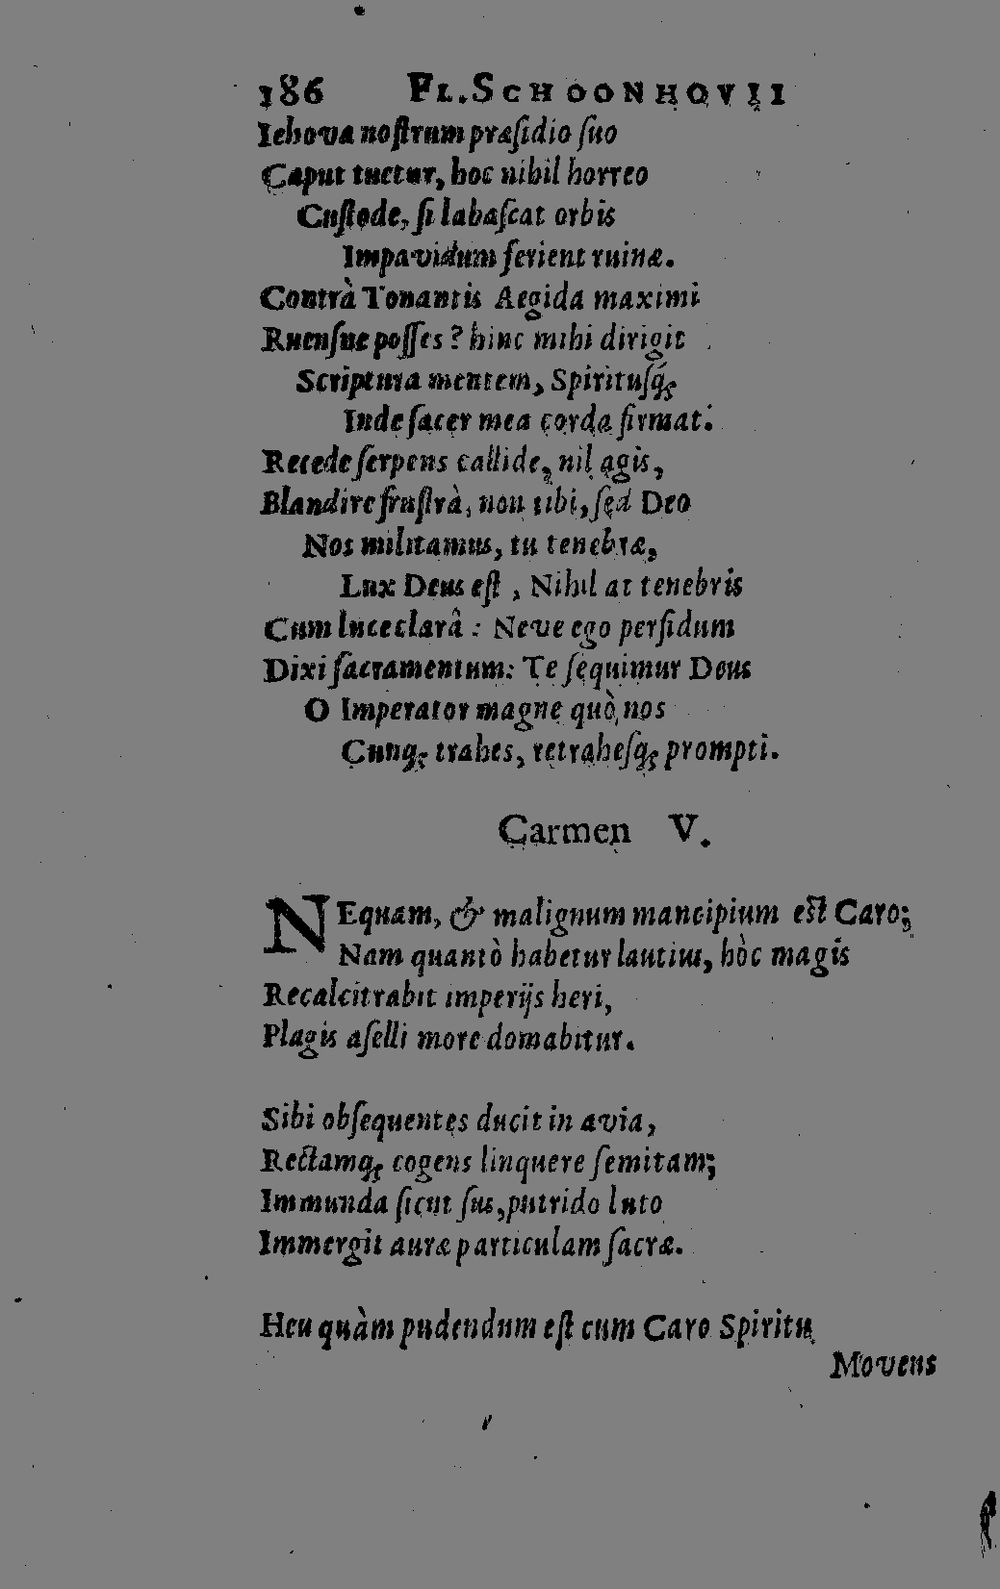 186 FL. SCHOONHOVII
Iehova noſtrum præſidio ſuo
Caput tuetur, hoc nihil horreo
Cuſtode, ſi labaſcat orbis
Impavidum ferient ruinæ.
Contrà Tonantis Aegida maximi
Ruenſue poſſes? hinc mihi dirigit
Scriptura mentem, Spirituſq;
Inde ſacer mea corda firmat.
Recede ſerpens callide, nil agis,
Blandire fruſtrà, non tibi, ſed Deo
Nos militamus, tu tenebræ,
Lux Deus eſt, Nihil at tenebris
Cum luce clarâ: Neve ego perfidum
Dixi ſacramentum: Te ſequimur Deus
O Imperator magne quò nos
Cunq; trahes, retraheſq; prompti.
Carmen V.
NEquam, & malignum mancipium eſt Caro;
Nam quantò habetur lautius, hòc magis
Recalcitrabit imperijs heri,
Plagis aſelli more domabitur.
Sibi obſequentes ducit in avia,
Rectamq; cogens linquere ſemitam;
Immunda ſicut ſus, putrido luto
Immergit auræ particulam ſacræ.
Heu quàm pudendum eſt cum Caro Spiritu
Movens